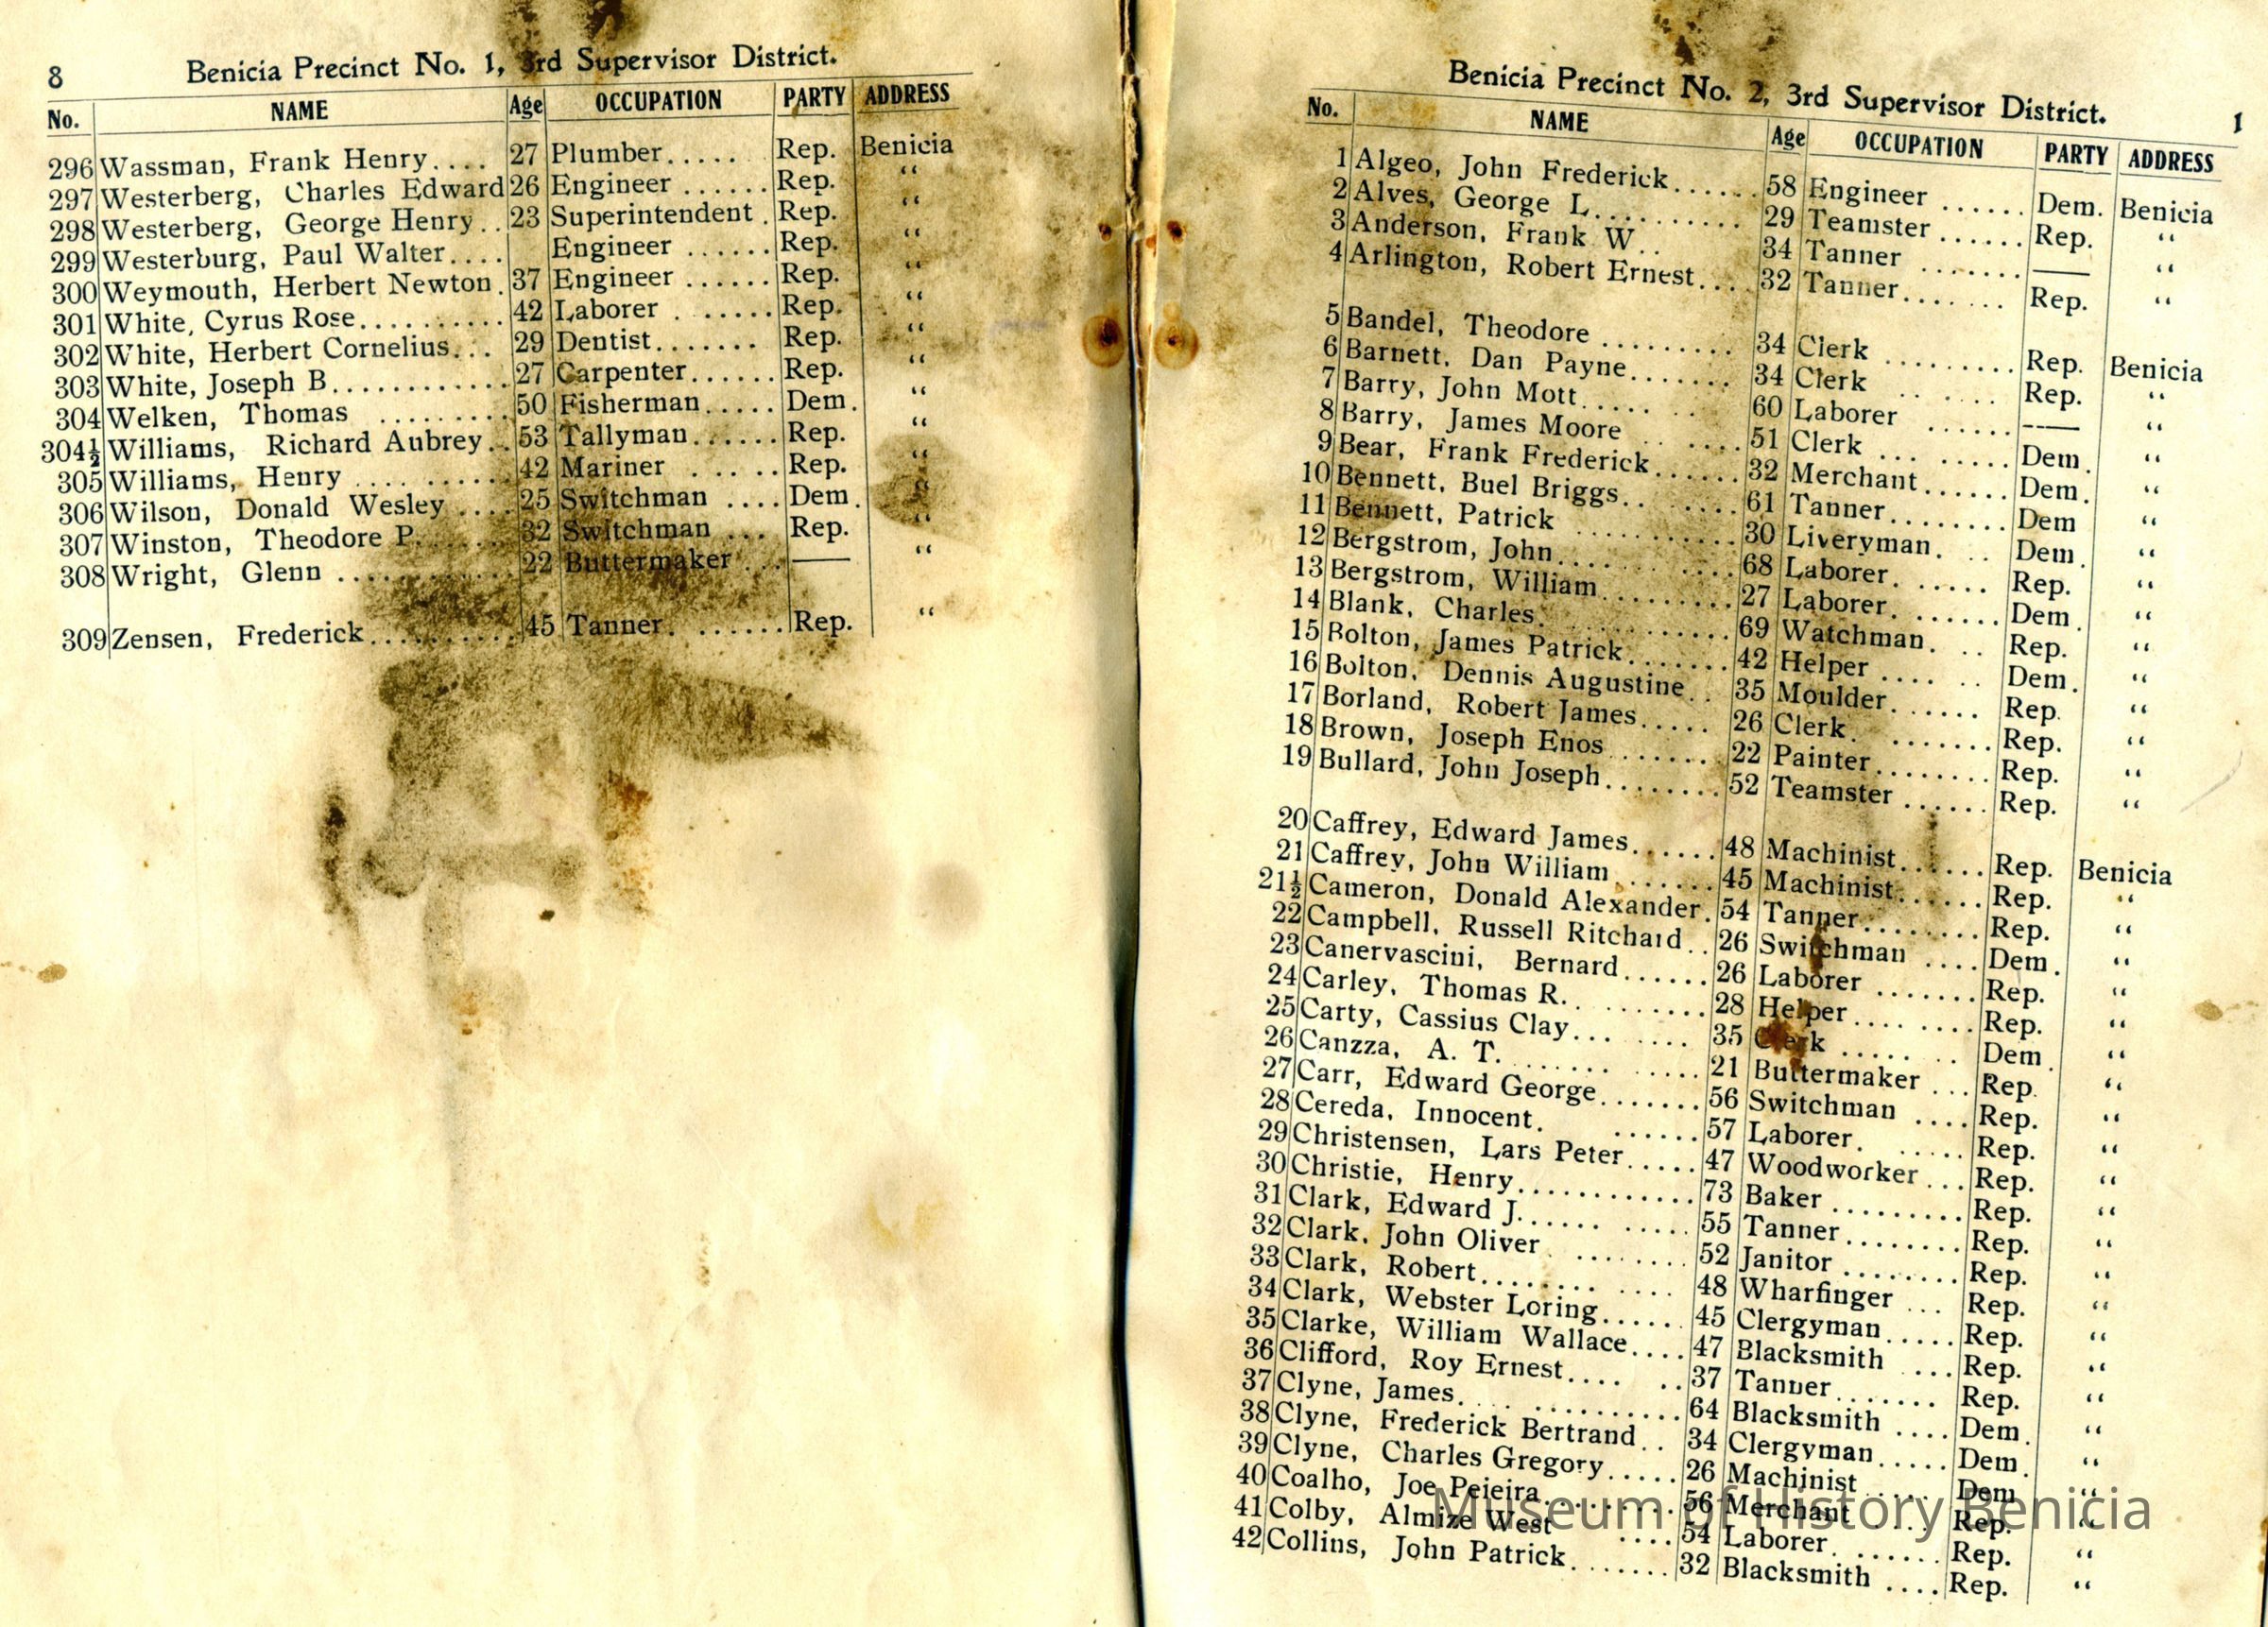 8 Benicia Precinct No. 1, 3rd Supervisor District.
No. NAME Age OCCUPATION PARTY ADDRESS
296 Wassman, Frank Henry.... 27 Plumber..... Rep. Benicia
297 Westerberg, Charles Edward 26 Engineer ...... Rep. “
298 Westerberg, George Henry.. 23 Superintendent . Rep. “
299 Westerburg, Paul Walter.... Engineer ...... Rep. “
300 Weymouth, Herbert Newton. 37 Engineer ...... Rep. “
301 White, Cyrus Rose.......... 42 Laborer ....... Rep. “
302 White, Herbert Cornelius... 29 Dentist....... Rep. “
303 White, Joseph B............ 27 Carpenter...... Rep. “
304 Welken, Thomas ......... 50 Fisherman..... Dem. “
304½ Williams, Richard Aubrey.. 53 Tallyman...... Rep. “
305 Williams, Henry .......... 42 Mariner ...... Rep. “
306 Wilson, Donald Wesley .... 25 Switchman .... Dem. “
307 Winston, Theodore P....... 32 Switchman ... Rep. “
308 Wright, Glenn ............ 22 Buttermaker ... —— “
309 Zensen, Frederick.......... 45 Tanner. ...... Rep. “
Benicia Precinct No. 2, 3rd Supervisor District. 1
No. NAME Age OCCUPATION PARTY ADDRESS
1 Algeo, John Frederick...... 58 Engineer ...... Dem. Benicia
2 Alves, George L.......... 29 Teamster ...... Rep. “
3 Anderson, Frank W.. 34 Tanner ....... —— “
4 Arlington, Robert Ernest.... 32 Tanner....... Rep. “
5 Bandel, Theodore ......... 34 Clerk ......... Rep. Benicia
6 Barnett, Dan Payne....... 34 Clerk ...... Rep. “
7 Barry, John Mott..... 60 Laborer ...... —— “
8 Barry, James Moore ...... 51 Clerk ... ..... Dem. “
9 Bear, Frank Frederick...... 32 Merchant...... Dem. “
10 Bennett, Buel Briggs...... 61 Tanner........ Dem “
11 Bennett, Patrick .......... 30 Liveryman. .. Dem. “
12 Bergstrom, John......... 68 Laborer. ..... Rep. “
13 Bergstrom, William......... 27 Laborer. ...... Dem. “
14 Blank, Charles........... 69 Watchman. .. Rep. “
15 Bolton, James Patrick....... 42 Helper .... .. Dem. “
16 Bolton, Dennis Augustine.. 35 Moulder...... Rep. “
17 Borland, Robert James..... 26 Clerk. ....... Rep. “
18 Brown, Joseph Enos ....... 22 Painter........ Rep. “
19 Bullard, John Joseph........ 52 Teamster ...... Rep. “
20 Caffrey, Edward James...... 48 Machinist...... Rep. Benicia
21 Caffrey, John William ...... 45 Machinist...... Rep. “
21½ Cameron, Donald Alexander. 54 Tanner........ Rep. “
22 Campbell, Russell Ritchard.. 26 Switchman .... Dem. “
23 Canervascini, Bernard...... 26 Laborer ....... Rep. “
24 Carley, Thomas R. ........ 28 Helper........ Rep. “
25 Carty, Cassius Clay... .... 35 Clerk ..... .. Dem. “
26 Canzza, A. T. ........... 21 Buttermaker ... Rep. “
27 Carr, Edward George....... 56 Switchman .... Rep. “
28 Cereda, Innocent. ...... 57 Laborer. ..... Rep. “
29 Christensen, Lars Peter..... 47 Woodworker ... Rep. “
30 Christie, Henry............ 73 Baker ......... Rep. “
31 Clark, Edward J...... ..... 55 Tanner........ Rep. “
32 Clark, John Oliver ........ 52 Janitor ........ Rep. “
33 Clark, Robert........ .... 48 Wharfinger ... Rep. “
34 Clark, Webster Loring...... 45 Clergyman..... Rep. “
35 Clarke, William Wallace.... 47 Blacksmith .... Rep. “
36 Clifford, Roy Ernest.... .. 37 Tanner....... Rep. “
37 Clyne, James. ............. 64 Blacksmith .... Dem. “
38 Clyne, Frederick Bertrand.. 34 Clergyman..... Dem. “
39 Clyne, Charles Gregory..... 26 Machinist ..... Dem “
40 Coalho, Joe Peieira........ 56 Merchant .... Rep. “
41 Colby, Almize West .... 54 Laborer. ...... Rep. “
42 Collins, John Patrick....... 32 Blacksmith .... Rep. “
Museum of History Benicia